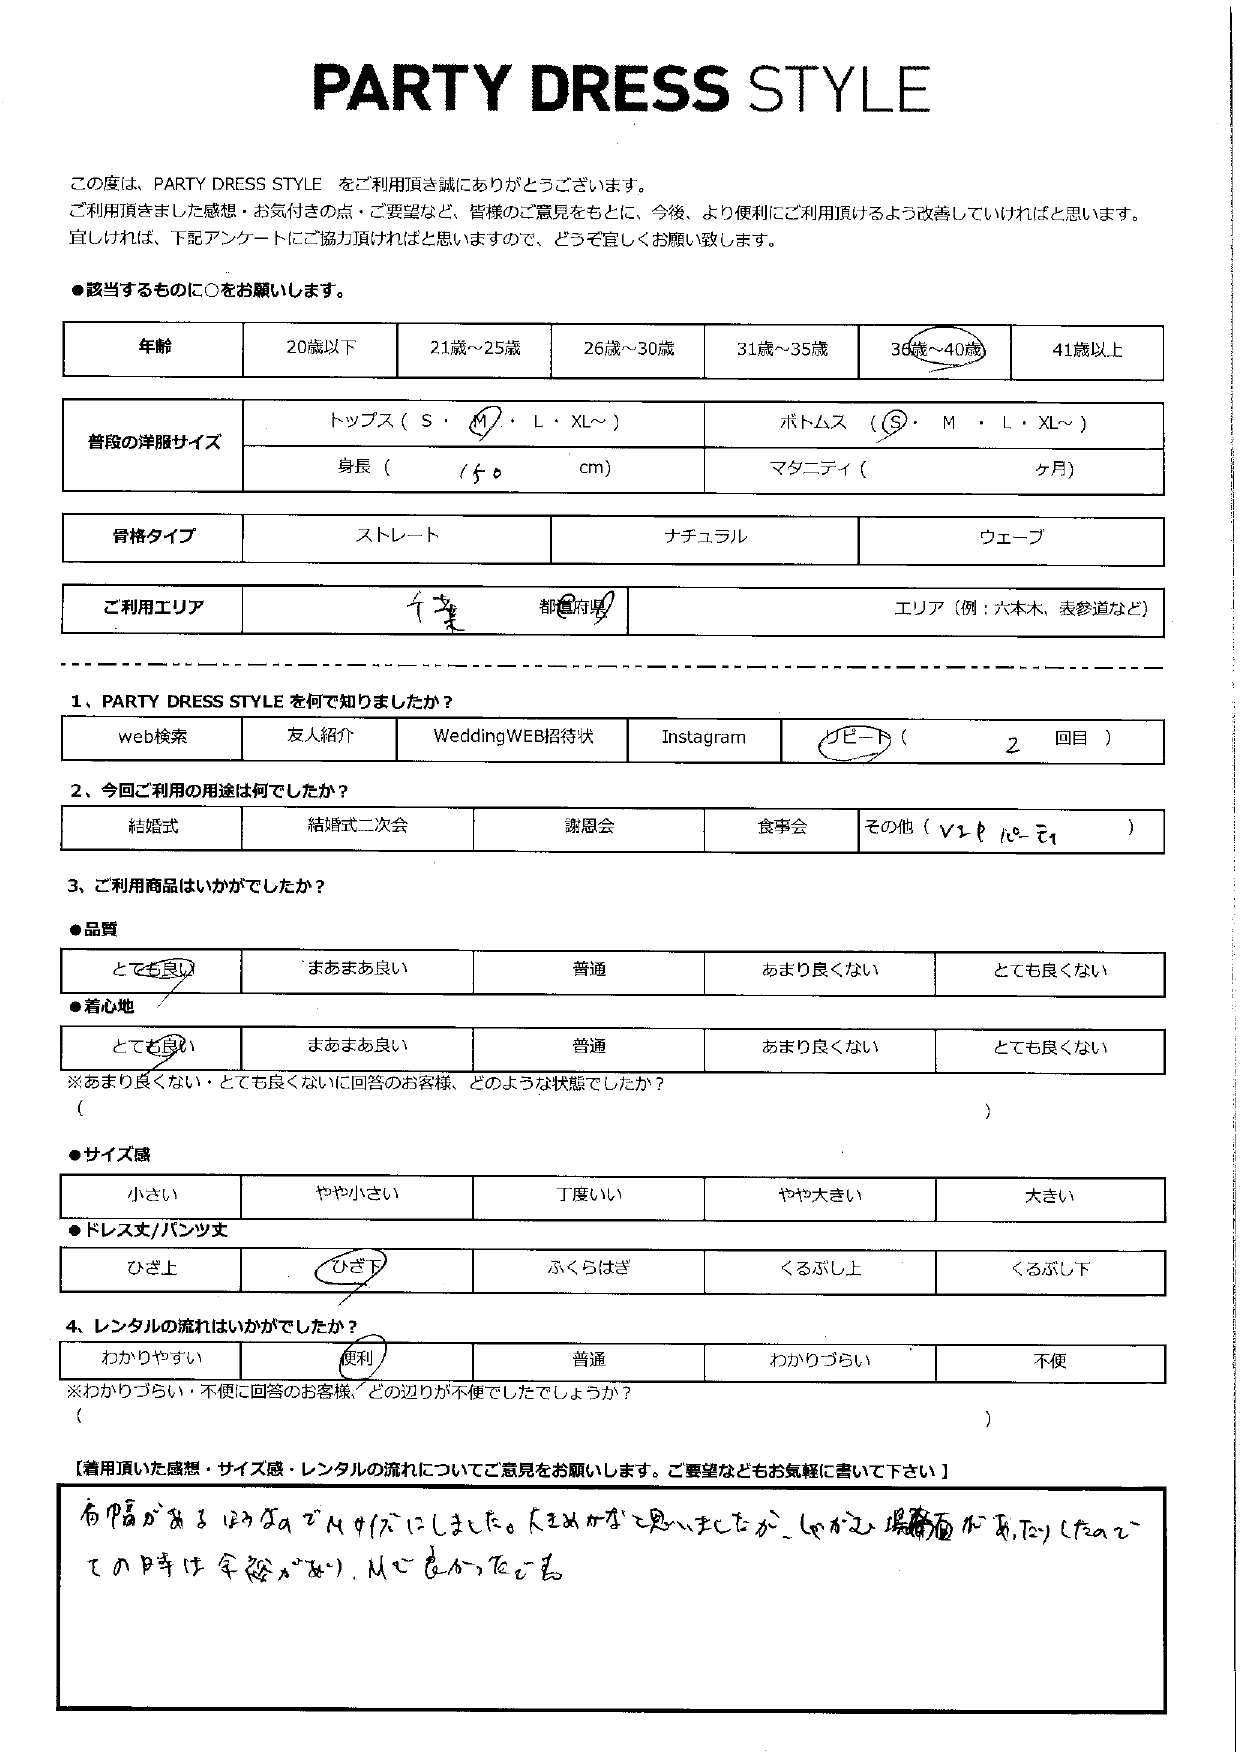 PARTY DRESS STYLE
この度は、PARTY DRESS STYLE をご利用頂き誠にありがとうございます。
ご利用頂きました感想・お気付きの点・ご要望など、皆様のご意見をもとに、今後、より便利にご利用頂けるよう改善していければと思います。
宜しければ、下記アンケートにご協力頂ければと思いますので、どうぞ宜しくお願い致します。
●該当するものに○をお願いします。
年齢 20歳以下 21歳～25歳 26歳～30歳 31歳～35歳 36歳～40歳 41歳以上
普段の洋服サイズ トップス ( S ・ M ・ L ・ XL～ ) ボトムス ( S ・ M ・ L ・ XL～ )
身長 ( 150 cm) マタニティ ( ヶ月)
骨格タイプ ストレート ナチュラル ウェーブ
ご利用エリア 千葉 都道府県 エリア（例：六本木、表参道など）
1、PARTY DRESS STYLE を何で知りましたか？
web検索 友人紹介 WeddingWEB招待状 Instagram リピート ( 2 回目 )
2、今回ご利用の用途は何でしたか？
結婚式 結婚式二次会 謝恩会 食事会 その他 ( VIP パーティ )
3、ご利用商品はいかがでしたか？
●品質
とても良い まあまあ良い 普通 あまり良くない とても良くない
●着心地
とても良い まあまあ良い 普通 あまり良くない とても良くない
※あまり良くない・とても良くないに回答のお客様、どのような状態でしたか？
( )
●サイズ感
小さい やや小さい 丁度いい やや大きい 大きい
●ドレス丈/パンツ丈
ひざ上 ひざ下 ふくらはぎ くるぶし上 くるぶし下
4、レンタルの流れはいかがでしたか？
わかりやすい 便利 普通 わかりづらい 不便
※わかりづらい・不便に回答のお客様、どの辺りが不便でしたでしょうか？
( )
【着用頂いた感想・サイズ感・レンタルの流れについてご意見をお願いします。ご要望などもお気軽に書いて下さい】
肩幅があるほうなのでMサイズにしました。大きめかなと思いましたが、しゃがむ場面があったりしたので
その時は余裕があり、Mで良かったです